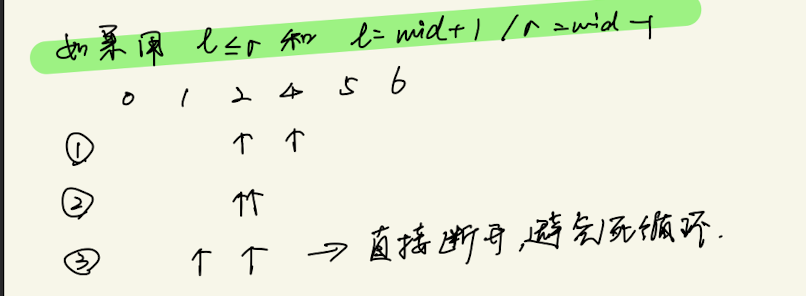 如果用 l≤r 和 l=mid+1 / r=mid-1
0 1 2 4 5 6
① ↑ ↑
② ↑↑
③ ↑ ↑ → 直接断开,避免死循环.